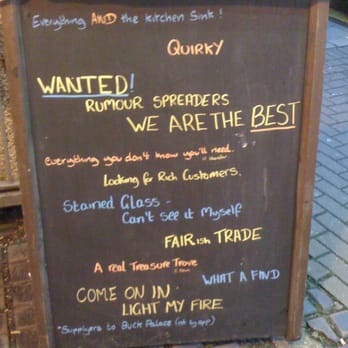 Everything AND the kitchen Sink!
QUIRKY
WANTED!
RUMOUR SPREADERS
WE ARE THE BEST
everything you don't know you'll need.
Looking for Rich Customers.
Stained Glass -
Can't see it Myself
FAIRish TRADE
A real Treasure Trove
WHAT A FIND
COME ON IN
LIGHT MY FIRE
*Supplyers to Buck Palace (not by app)